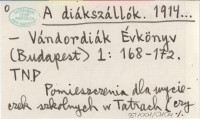 0
A diákszállók. 1914...
- Vándordiák Évkönyv
(Budapest) 1: 168-172.
TNP
Pomieszczenia dla wycie-
czek szkolnych w Tatrach (czy